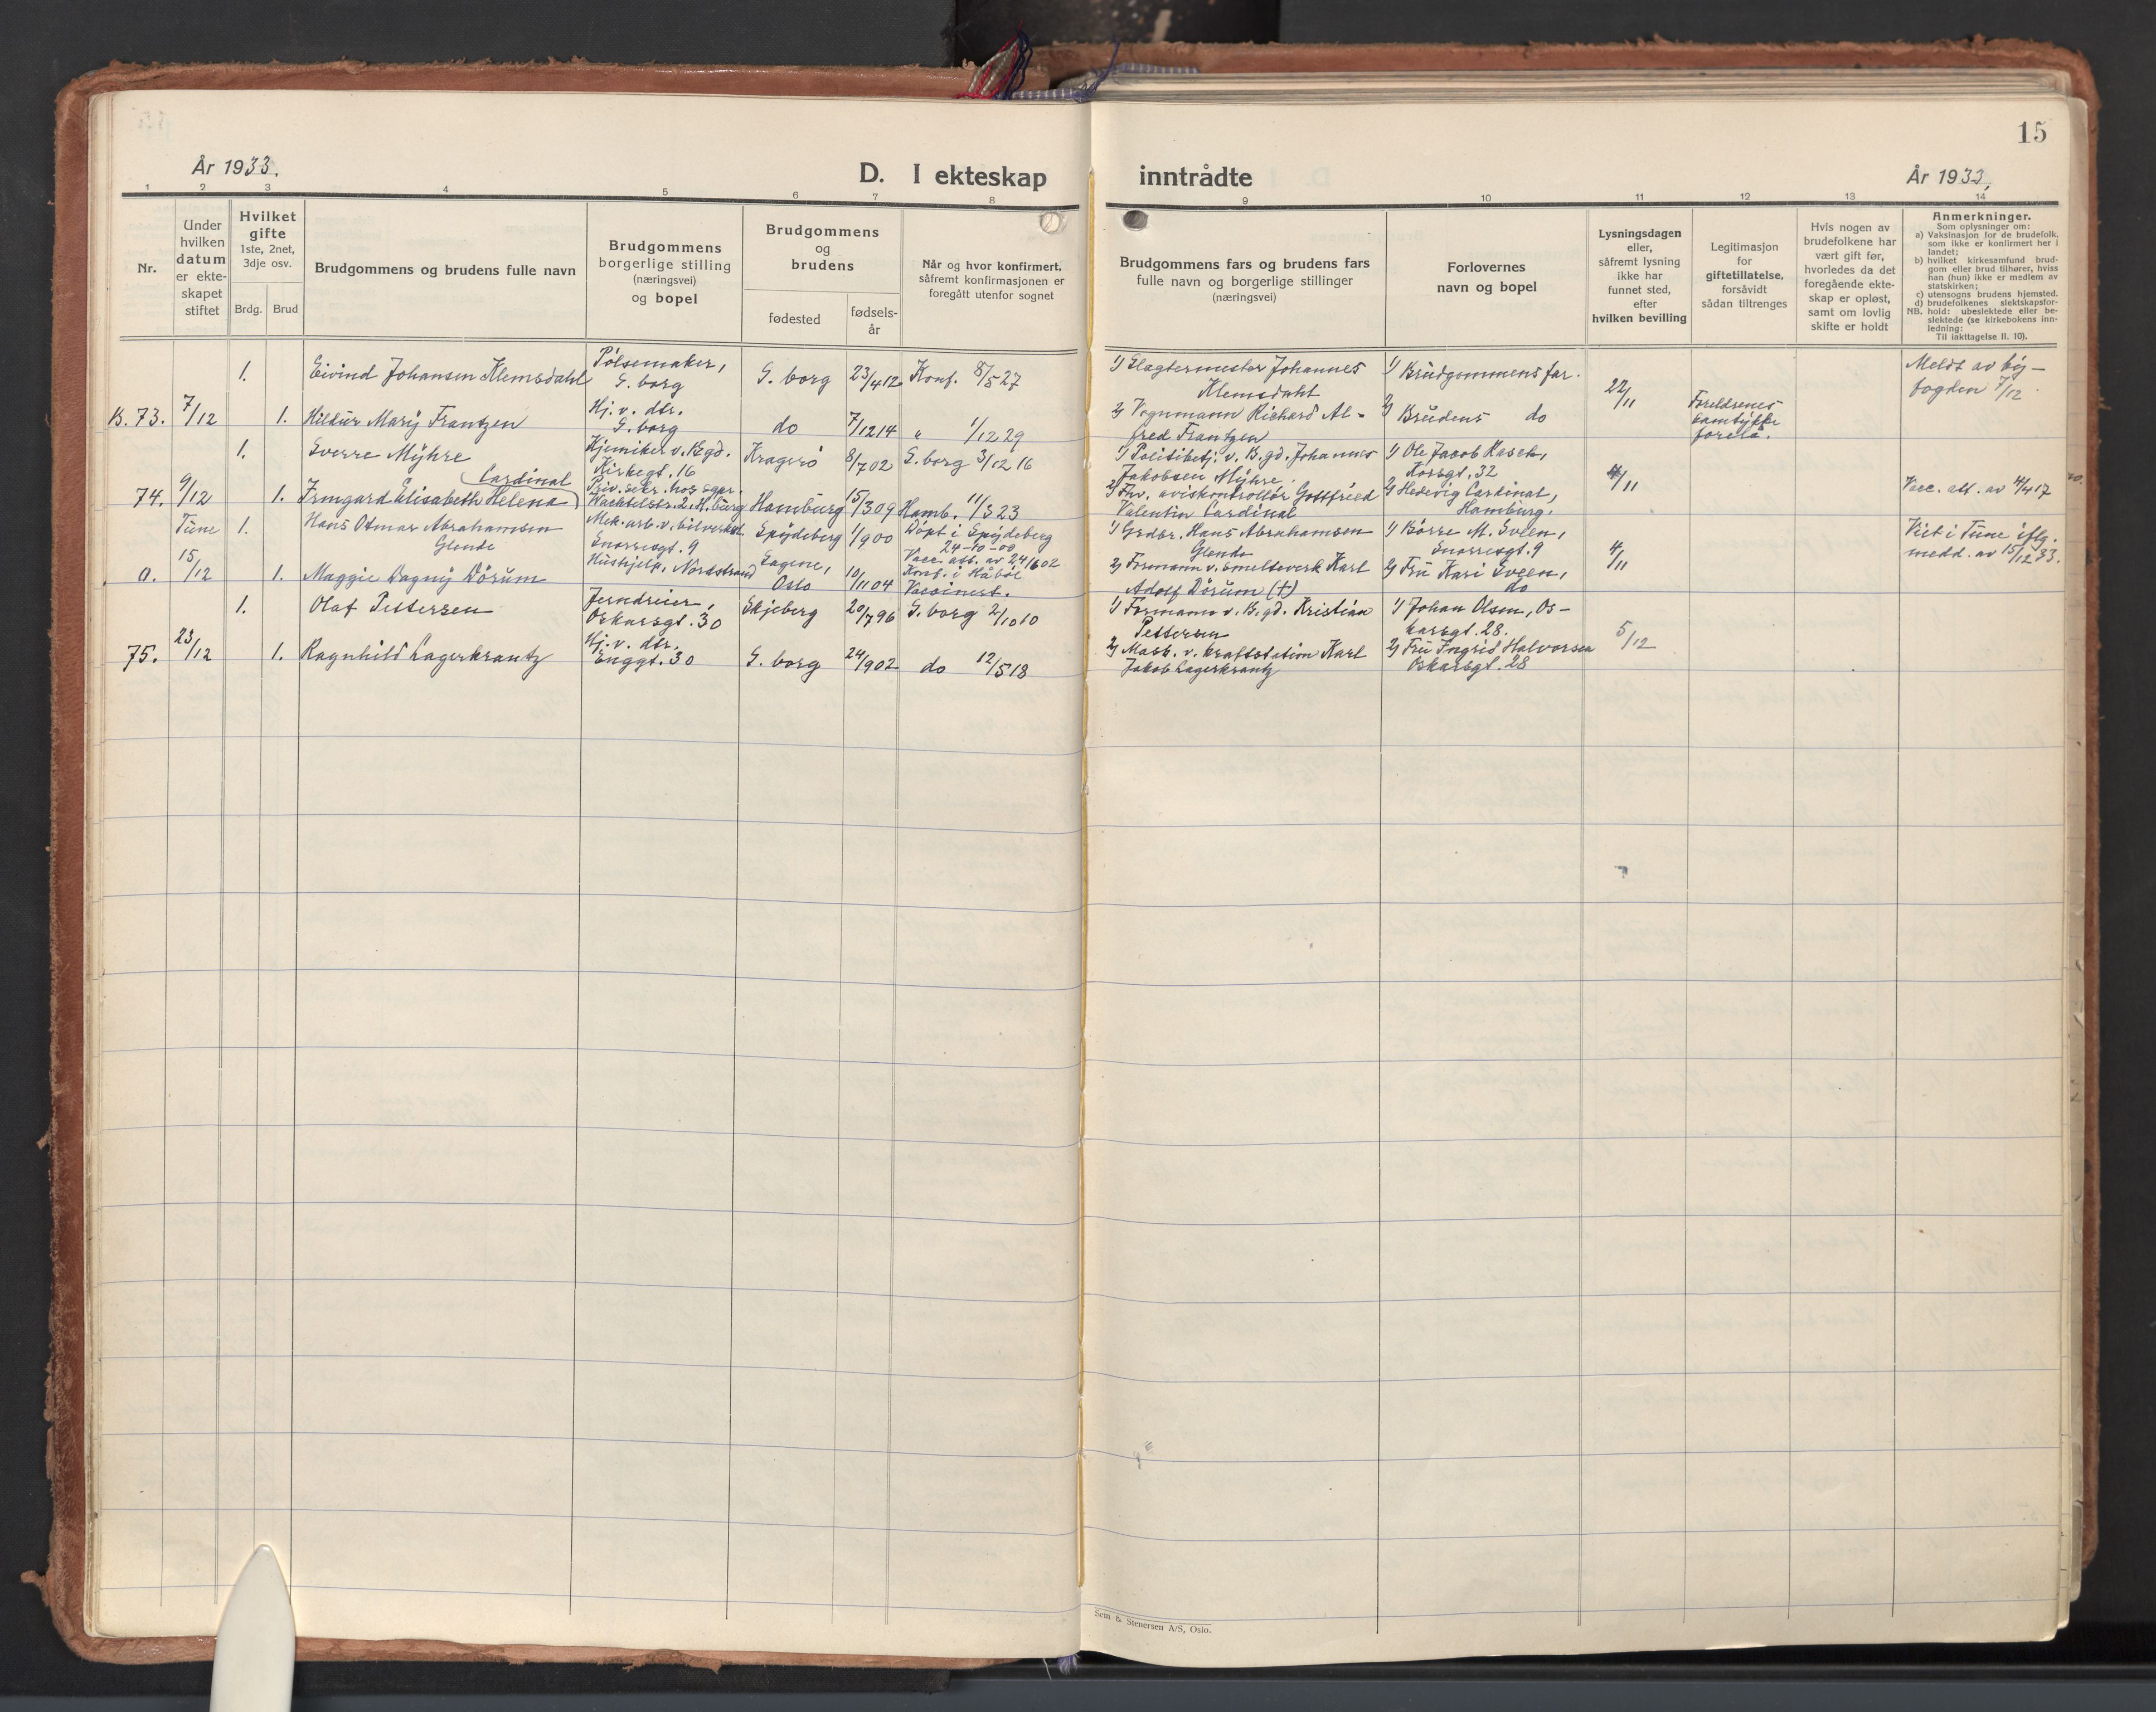 15
År 1933.
D. I ekteskap inntrådte
År 1933,
1 2 3 4 5 6 7 8 9 10 11 12 13 14
Nr.
Under
hvilken
datum
er ekte-
skapet
stiftet
Hvilket
gifte
1ste, 2net,
3dje osv.
Brdg. Brud
Brudgommens og brudens fulle navn
Brudgommens
borgerlige stilling
(næringsvei)
og bopel
Brudgommens
og
brudens
fødested
fødsels-
år
Når og hvor konfirmert,
såfremt konfirmasjonen er
foregått utenfor sognet
Brudgommens fars og brudens fars
fulle navn og borgerlige stillinger
(næringsvei)
Forlovernes
navn og bopel
Lysningsdagen
eller,
såfremt lysning
ikke har
funnet sted,
efter
hvilken bevilling
Legitimasjon
for
giftetillatelse,
forsåvidt
sådan tiltrenges
Hvis nogen av
brudefolkene har
vært gift før,
hvorledes da det
foregående ekte-
skap er opløst,
samt om lovlig
skifte er holdt
Anmerkninger.
Som oplysninger om:
a) Vaksinasjon for de brudefolk,
som ikke er konfirmert her i
landet;
b) hvilket kirkesamfund brud-
gom eller brud tilhører, hviss
han (hun) ikke er medlem av
statskirken;
c) utensogns brudens hjemsted.
d) brudefolkenes slektskapsfor-
NB. hold: ubeslektede eller be-
slektede (se kirkebokens inn-
ledning:
Til iakttagelse II. 10).
B. 73.
7/12
1.
Eivind Johansen Klemsdahl
Pølsemaker,
S. borg
S. borg
23/4 12
Konf. 8/5 27
1) Slagtermester Johannes
Klemsdahl
1) Brudgommens far.
22/11
Meldt av bÿ-
fogden 7/12.
1.
Hildur Marÿ Frantzen
Hj. v. dtr.
S. borg
do
7/12 14
" 1/12 29
2) Vognmann Richard Al-
fred Frantzen
2) Brudens do
Foreldrenes
samtÿkke
forelå.
74.
9/12
1.
Sverre Mÿhre
Kjemiker v. B.gd.
Kirkegt. 16
Kragerø
8/7 02
S. borg 3/12 16
1) Politibetj. v. B. gd. Johannes
Jakobsen Mÿhre.
1) Ole Jacob Rasch,
Korsgt. 32
4/11
1.
Cardinal
Irmgard Elisabeth Helena
Priv. sekr. hos sgpr.
Wachtelstr. 2, H. burg
Hamburg
15/3 09
Hamb. 11/3 23
2) Fhv. aviskontrollør Gottfried
Valentin Cardinal
2) Hedevig Cardinal,
Hamburg.
Vacc. att. av 4/4 17
0.
Tune
15/12
1.
Hans Otmar Abrahamsen
Glende
Mek. arb. v. bilverkst.
Snorresgt. 9
Spÿdeberg
1/9 00
Døpt i Spÿdeberg
24-10-00
Vacc. att. av 24/6 02
1) Grdbr. Hans Abrahamsen
Glende
1) Børre M. Sveen,
Snorresgt. 9
4/11
Viet i Tune iflg.
medd. av 15/12 33.
1.
Maggie Dagnÿ Dørum
Hushjelp, Nordstrand
Sagene,
Oslo
10/11 04
Konf. i Håbøl
Vaccinert.
2) Formann v. smelteverk Karl
Adolf Dørum (†)
2) Fru Kari Sveen,
do
75.
23/12
1.
Olaf Pettersen
Jerndreier,
Oskarsgt. 30
Skjeberg
20/7 96
S. borg 2/10 10
1) Formann v. B. gd. Kristian
Pettersen
1) Johan Olsen, Os-
karsgt. 28.
5/12
1.
Ragnhild Lagerkrantz
Hj. v. dtr.
Enggt. 30
S. borg
24/9 02
do 12/5 18
2) Mask. v. kraftstation Karl
Jakob Lagerkrantz
2) Fru Ingrid Halvorsen
Oskarsgt. 28
Sem & Stenersen A/S, Oslo.